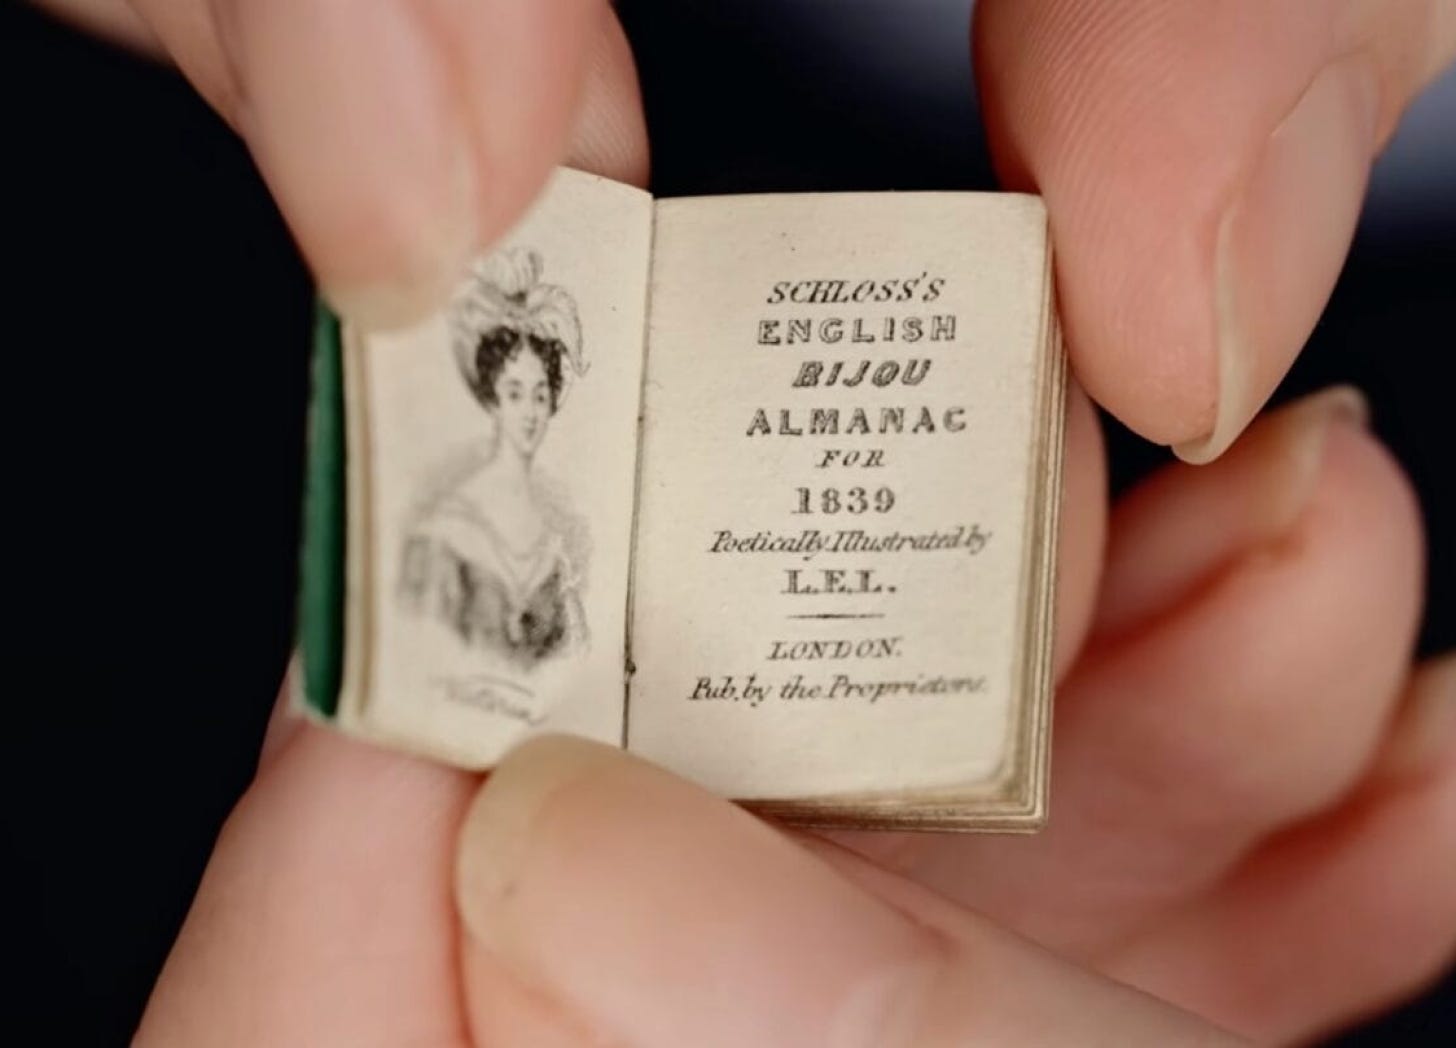 Victoria
SCHLOSS'S
ENGLISH
BIJOU
ALMANAC
FOR
1839
Poetically Illustrated by
L.E.L.
LONDON.
Pub. by the Proprietors.